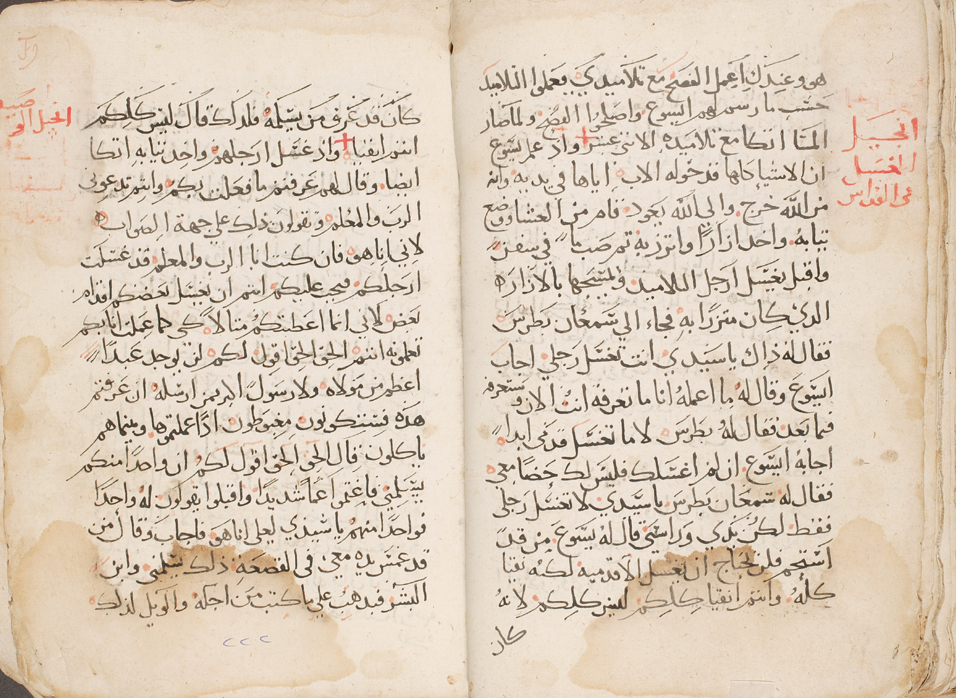 هو وعندك اعمل الفصح مع تلاميدي ففعلوا التلاميد
حسب ما رسم لهم ايسوع واصلحوا الفصح ولما صار
المسا اتكا مع تلاميده الاتني عشر واد علم يسوع
ان الاشيا كلها قد خوله الاب اياها في يديه وانه
من الله خرج والي الله يعود قام من العشا ووضع
تيابه واخد ازارًا واتزر به تم صب ماً في سفل
واقبل يغسل ارجل التلاميد ويمسحها بالازار
الدي كان متزرًا به فجاء الي شمعان بطرس
فقال له داك يا سيدي انت تغسل رجلي اجاب
ايسوع وقال له ما اعمله انا ما تعرفه انت الان وستعرفه
فما بعد فقال له بطرس لا ما تغسل قدمي ابدا
اجابه ايسوع ان لم اغسلك فليس لك حضا معي
فقال له شمعان بطرس يا سيدي لا تغسل رجلي
فقط لكن يدي وراسي قال له يسوع من قد
استحم فلن يحتاج ان يغسل الا قدميه لكنه نقيا
كله وانتم انقيا كلكم ليس كلكم لانه
كان
انجيل
الغسل
عي القداس
كان قد عرف من يسلمه فلدلك قال ليس كلكم
انتم انقيا واد غسل ارجلهم واخد تيابه اتكا
ايضا وقال لهم عرفتم ما فعلت بكم وانتم تدعوني
الرب والمعلم وتقولون دلك علي جهة الصواب
لاني انا هو فان كنت انا الرب والمعلم قد غسلت
ارجلكم فيجب عليكم انتم ان يغسل بعضكم اقدام
بعض لاني انما اعطيتكم متالا كي كما عملت انا بكم
تعملونه انتم الحق الحق اقول لكم لن يوجد عبدا
اعظم من مولاه ولا رسول اكبر ممن ارسله ان عرفتم
هده فستكونون مغبوطون ادا عملتموها وفيما هم
ياكلون قال الحق الحق اقول لكم ان واحدا منكم
يسلمني فاغتموا غما شديدا واقبلوا يقولون له واحدا
فواحدا منهم يا سيدي لعلي انا هو فاجاب وقال من
قد غمس يده معي في القصعه دلك يسلمني وابن
البشر فيدهب علي ما كتب من اجله والويل لدلك
٢٢٢